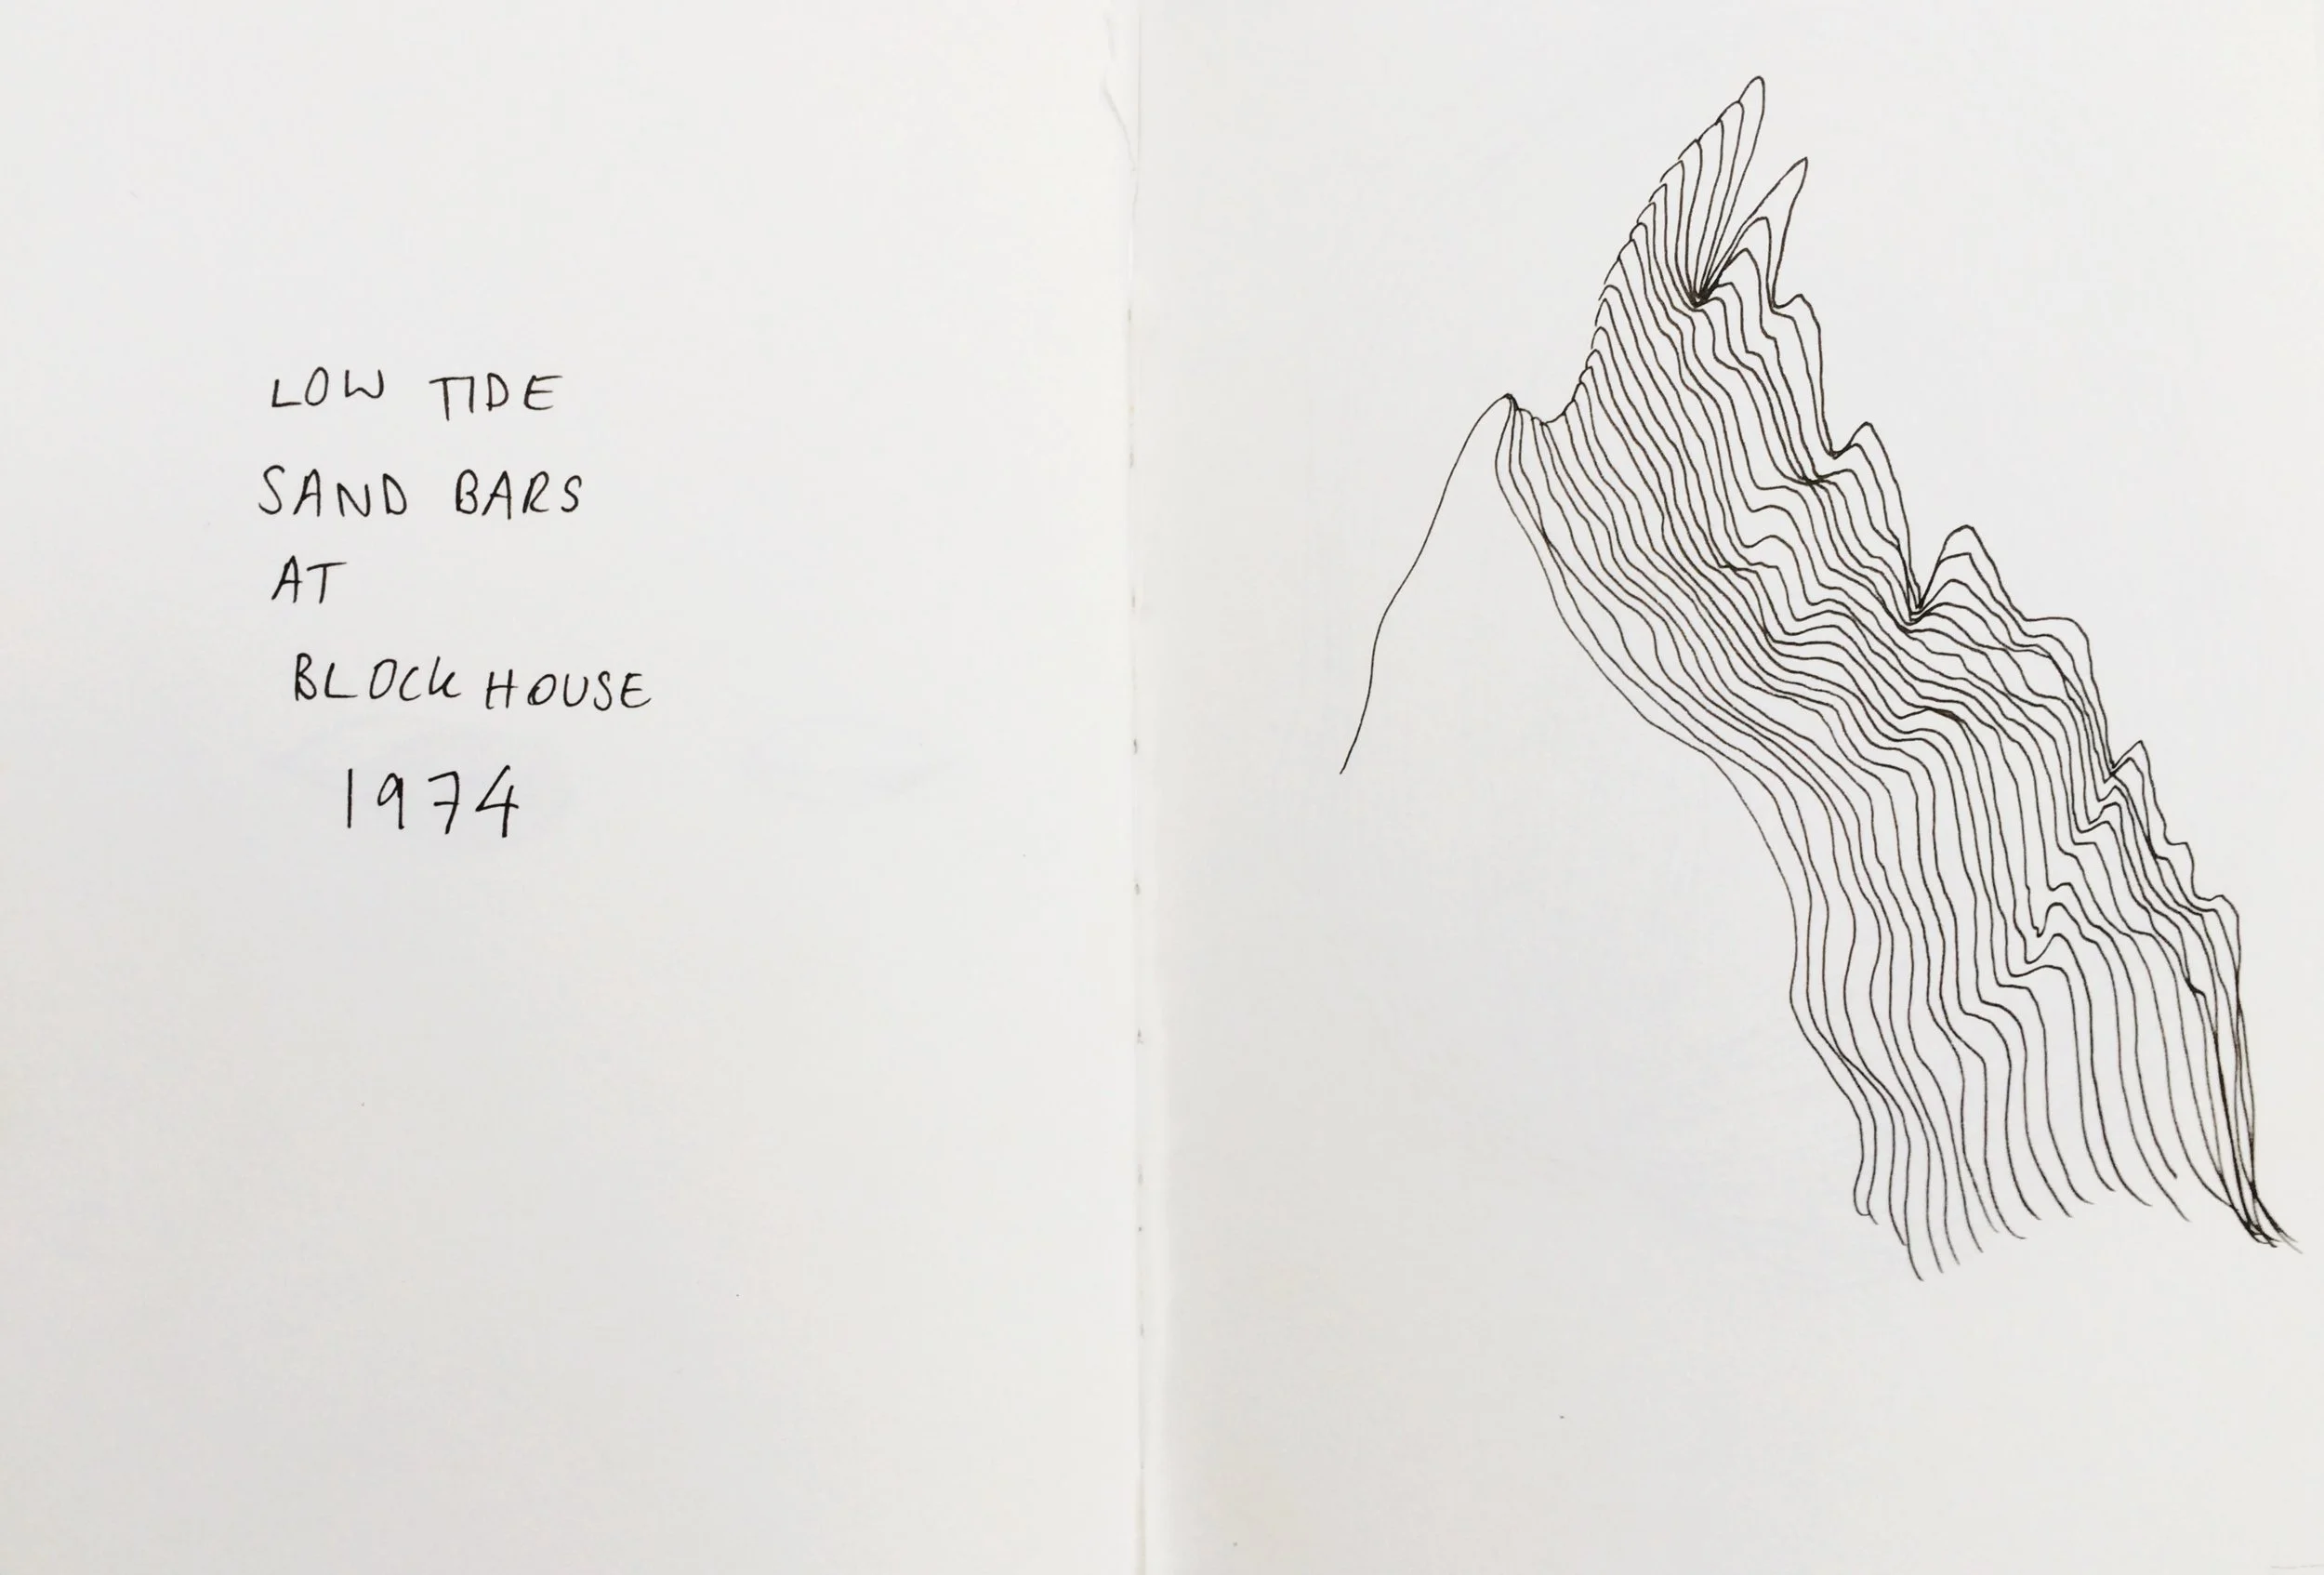 LOW TIDE
SAND BARS
AT
BLOCK HOUSE
1974